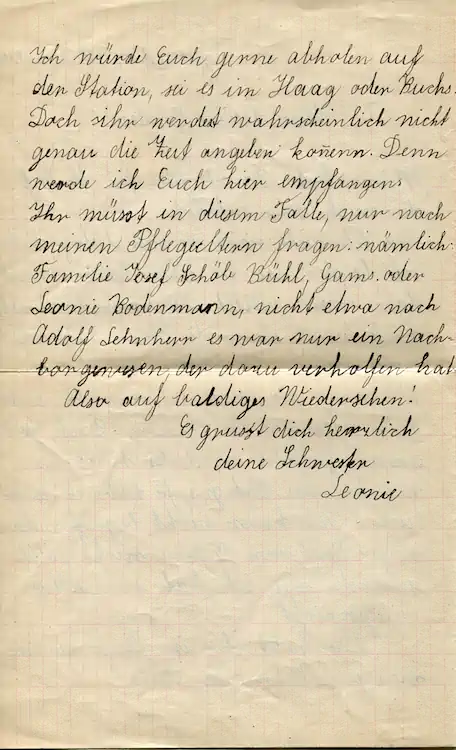 Ich würde Euch gerne abholen auf
der Station, sei es im Haag oder Buchs.
Doch ihr werdet wahrscheinlich nicht
genau die Zeit angeben koñenn. Denn
werde ich Euch hier empfangen.
Ihr müsst in diesem Falle, nur nach
meinen Pflegeeltern fragen: nämlich:
Familie Josef Schöb Bühl, Gams. oder
Leonie Bodenmann, nicht etwa nach
Adolf Lehnherr es war nur ein Nach-
borgewesen, der dazu verholfen hat.
Also auf baldiges Wiedersehen!
Es grüsst dich herzlich
deine Schwester
Leonie